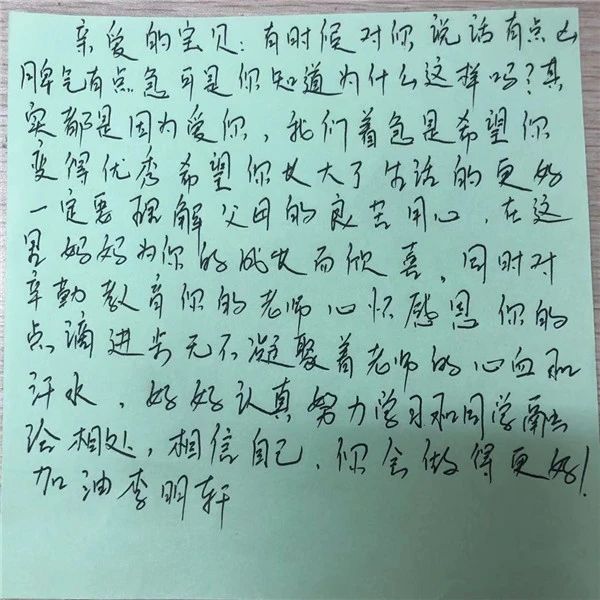 亲爱的宝贝：有时候对你说话有点凶
脾气有点急可是你知道为什么这样吗？其
实都是因为爱你，我们着急是希望你
变得优秀希望你长大了生活的更好
一定要理解父母的良苦用心，在这
里妈妈为你的成长而欣喜，同时对
辛勤教育你的老师心怀感恩你的
点滴进步无不凝聚着老师的心血和
汗水，好好认真努力学习和同学融
洽相处，相信自己，你会做得更好！
加油李明轩